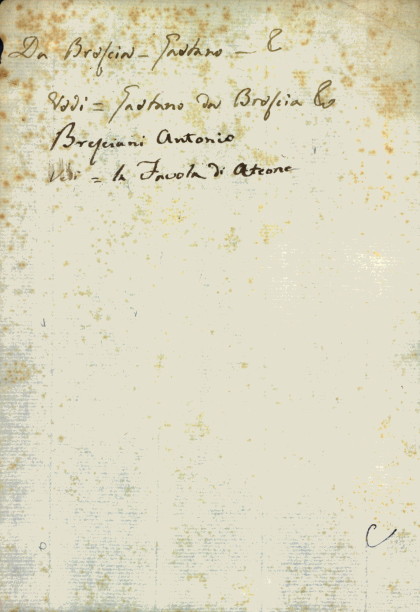 Da Brescia = Gaetano =
Vedi = Gaetano da Brescia
Bresciani Antonio
Vedi = la Favola di Ateone